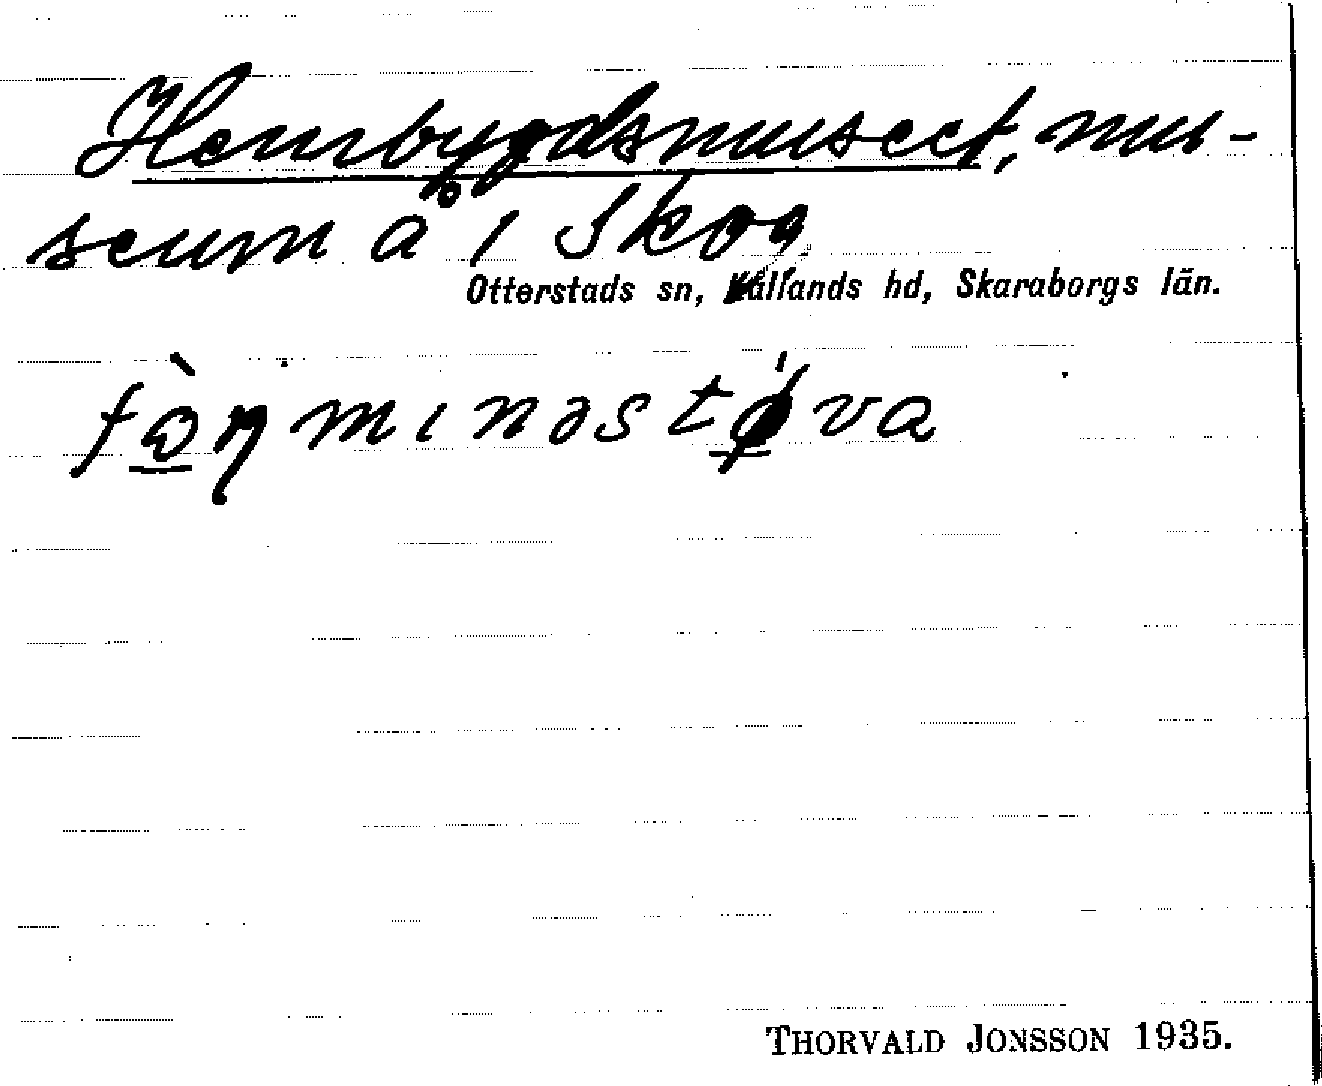 Hembygdsmuseet, mu-
seum å i Skog
Otterstads sn, Kållands hd, Skaraborgs län.
THORVALD JONSSON 1935.